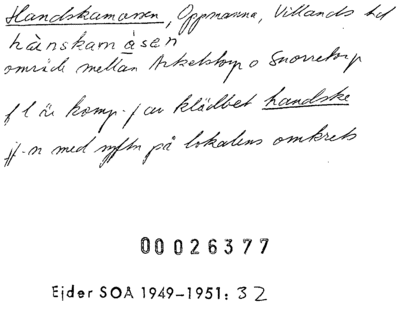 Handskamossen, Oppmanna, Villands hd
hànskamåsen
område mellan Arkelstorp o Snorretorp
f l är komp. f av klädbet handske
jf-n med syftn på lokalens omkrets
00026377
Ejder SOA 1949–1951: 32